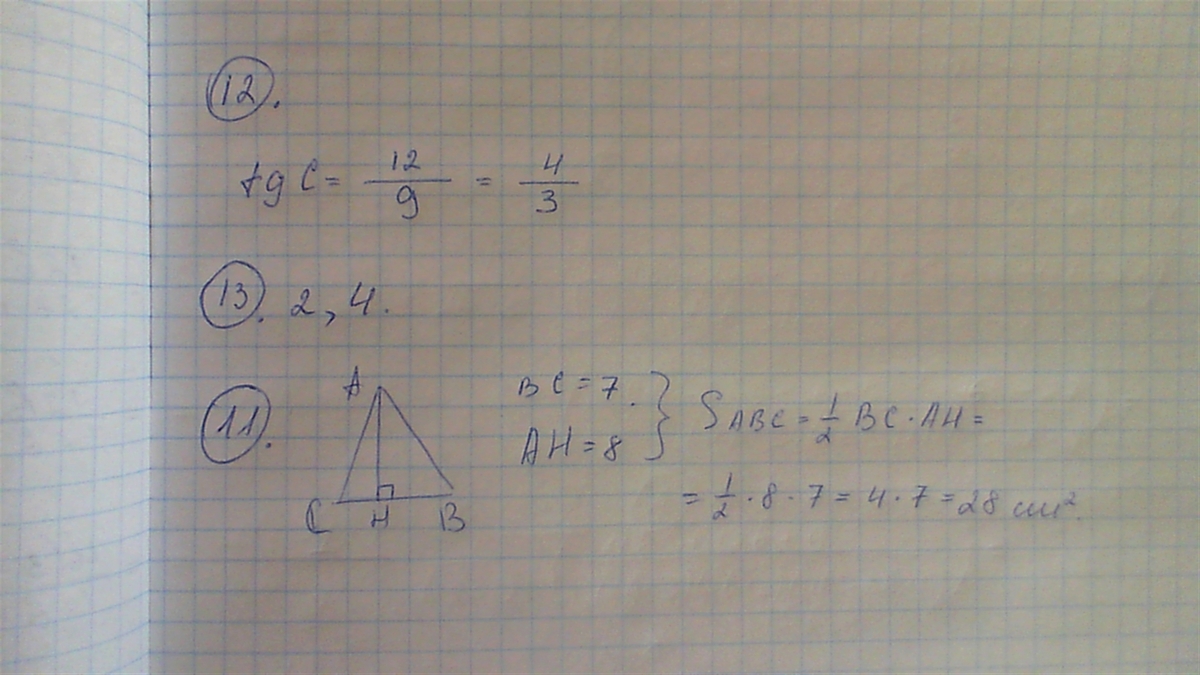 12.
tg C = 12/9 = 4/3
13. 2, 4.
11.
A
C H B
BC = 7.
AH = 8
} S ABC = 1/2 BC · AH =
= 1/2 · 8 · 7 = 4 · 7 = 28 см².